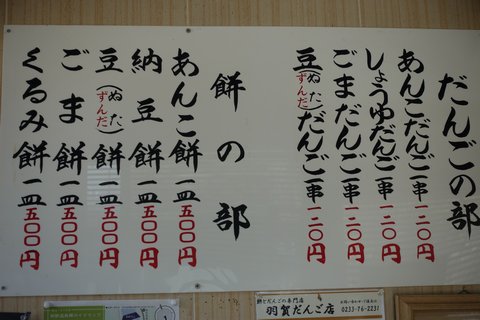 だんごの部
あんこだんご一串一二〇円
しょうゆだんご一串一二〇円
ごまだんご一串一二〇円
豆(ぬた)ずんだだんご一串一二〇円
餅の部
あんこ餅一皿五〇〇円
納豆餅一皿五〇〇円
豆(ぬた)ずんだ餅一皿五〇〇円
ごま餅一皿五〇〇円
くるみ餅一皿五〇〇円
餅とだんごの専門店
羽賀だんご店
0233-76-2231